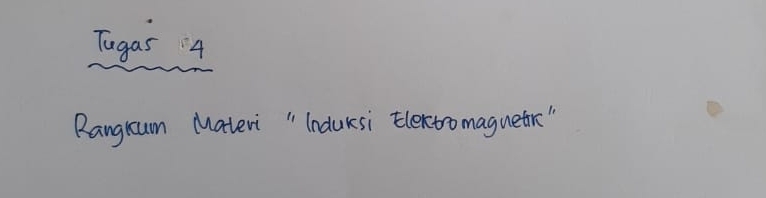 Tugas 4
Rangkum Materi "Induksi Elektromagnetik"